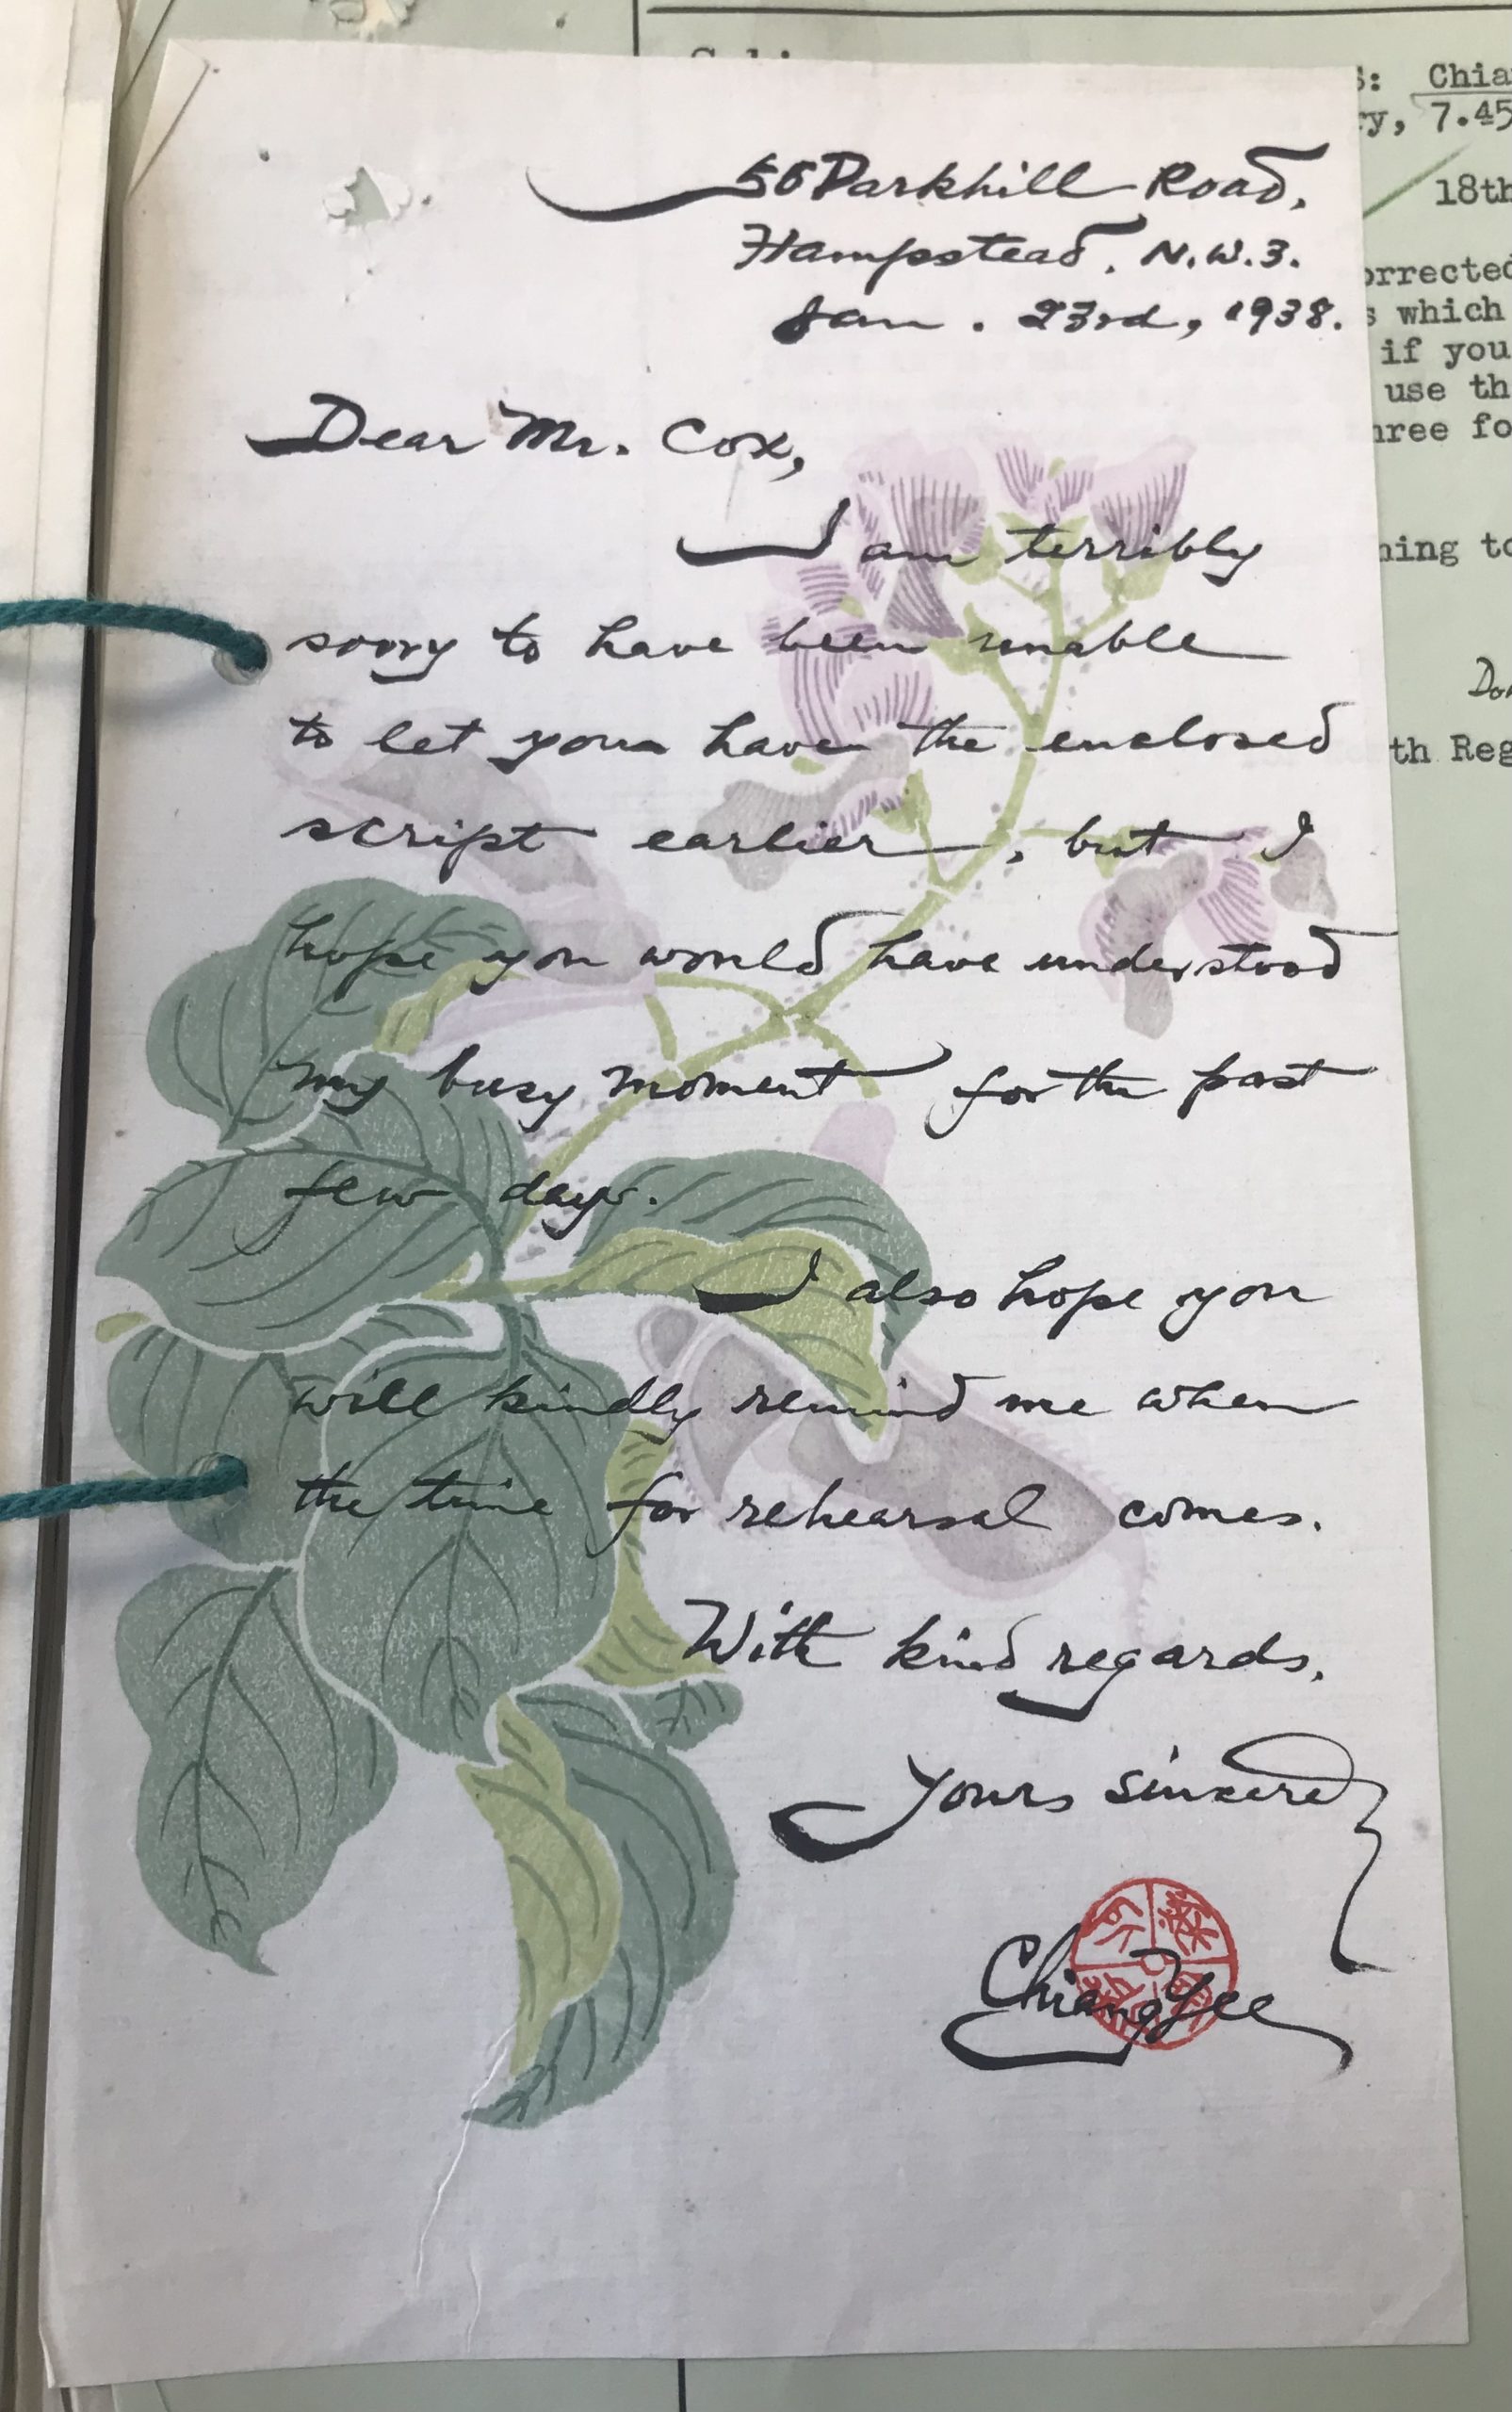 50 Parkhill Road,
Hampstead, N.W.3.
Jan. 23rd, 1938.
Dear Mr. Cox,
I am terribly
sorry to have been unable
to let you have the enclosed
script earlier, but I
hope you would have understood
my busy moment for the past
few days.
I also hope you
will kindly remind me when
the time for rehearsal comes.
With kind regards,
Yours sincerely
Chiang Yee
: Chia
ry, 7.45
18th
orrected
s which
if you
use th
hree fo
hing to
th Reg